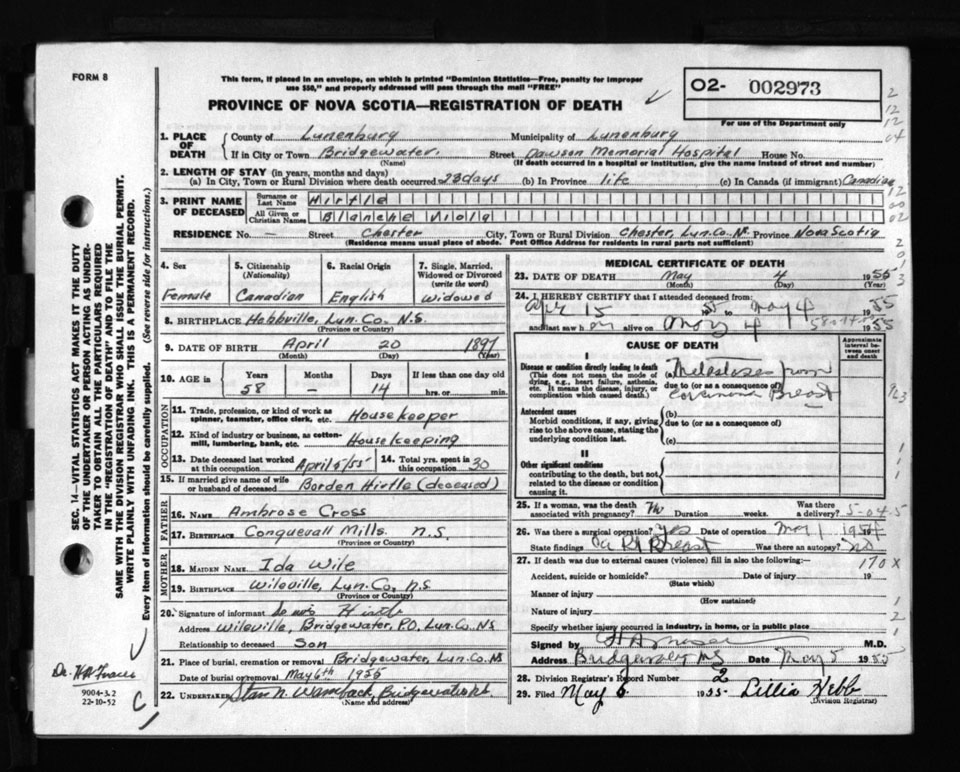 FORM 8
This form, if placed in an envelope, on which is printed "Dominion Statistics—Free, penalty for improper
use $50," and properly addressed will pass through the mail "FREE"
PROVINCE OF NOVA SCOTIA—REGISTRATION OF DEATH
02- 002973
For use of the Department only
1. PLACE OF DEATH
County of Lunenburg Municipality of Lunenburg
If in City or Town Bridgewater. Street Dawson Memorial Hospital House No.
(Name) (If death occurred in a hospital or institution, give the name instead of street and number)
2. LENGTH OF STAY (in years, months and days)
(a) In City, Town or Rural Division where death occurred 28 days (b) In Province life (c) In Canada (if immigrant) Canadian
3. PRINT NAME OF DECEASED
Surname or Last Name Hirtle
All Given or Christian Names Blanche Viola
RESIDENCE No. — Street Chester City, Town or Rural Division Chester, Lun. Co. N.S. Province Nova Scotia
(Residence means usual place of abode. Post Office Address for residents in rural parts not sufficient)
4. Sex Female
5. Citizenship (Nationality) Canadian
6. Racial Origin English
7. Single, Married, Widowed or Divorced (write the word) Widowed
8. BIRTHPLACE Hebbville, Lun. Co. N.S.
(Province or Country)
9. DATE OF BIRTH April 20 1897
(Month) (Day) (Year)
10. AGE in Years 58 Months Days 14 If less than one day old hrs. or min.
OCCUPATION
11. Trade, profession, or kind of work as spinner, teamster, office clerk, etc. Housekeeper
12. Kind of industry or business, as cotton-mill, lumbering, bank, etc. Housekeeping
13. Date deceased last worked at this occupation April 5/55
14. Total yrs. spent in this occupation 30
15. If married give name of wife or husband of deceased Borden Hirtle (deceased)
FATHER
16. NAME Ambrose Cross
17. BIRTHPLACE Conquerall Mills. N.S.
(Province or Country)
MOTHER
18. MAIDEN NAME Ida Wile
19. BIRTHPLACE Wileville, Lun. Co. N.S
(Province or Country)
20. Signature of informant Hirtle
Address Wileville, Bridgewater, P.O. Lun. Co. NS
Relationship to deceased Son
21. Place of burial, cremation or removal Bridgewater, Lun. Co. NS
Date of burial or removal May 6th 1955
22. UNDERTAKER Stan N. Wamback, Bridgewater
(Name and address)
MEDICAL CERTIFICATE OF DEATH
23. DATE OF DEATH May 4 1955
(Month) (Day) (Year)
24. I HEREBY CERTIFY that I attended deceased from:
Apr 15 1955 to May 4 1955
and last saw h er alive on May 4 1955
CAUSE OF DEATH
Approximate interval between onset and death
I
Disease or condition directly leading to death
(This does not mean the mode of dying, e.g., heart failure, asthenia, etc. It means the disease, injury, or complication which caused death.)
(a) Metastases from
due to (or as a consequence of)
Carcinoma Breast
Antecedent causes
Morbid conditions, if any, giving rise to the above cause, stating the underlying condition last.
(b)
due to (or as a consequence of)
(c)
II
Other significant conditions
contributing to the death, but not related to the disease or condition causing it.
25. If a woman, was the death associated with pregnancy? No Duration weeks. Was there a delivery?
26. Was there a surgical operation? Yes Date of operation May 1954
State findings Ca Rt Breast Was there an autopsy? No
27. If death was due to external causes (violence) fill in also the following:—
170 X
Accident, suicide or homicide? Date of injury 19
(State which)
Manner of injury
(How sustained)
Nature of injury
Specify whether injury occurred in industry, in home, or in public place
Signed by M.D.
Address Bridgewater NS Date May 5 1955
28. Division Registrar's Record Number 2
29. Filed May 6 1955- Lillia Hebb
(Division Registrar)
SEC. 14—VITAL STATISTICS ACT MAKES IT THE DUTY
OF THE UNDERTAKER OR PERSON ACTING AS UNDER-
TAKER TO OBTAIN ALL THE PARTICULARS REQUIRED
IN THE "REGISTRATION OF DEATH" AND TO FILE THE
SAME WITH THE DIVISION REGISTRAR WHO SHALL ISSUE THE BURIAL PERMIT.
WRITE PLAINLY WITH UNFADING INK. THIS IS A PERMANENT RECORD.
Every item of information should be carefully supplied. (See reverse side for instructions.)
9004-3.2
22-10-52